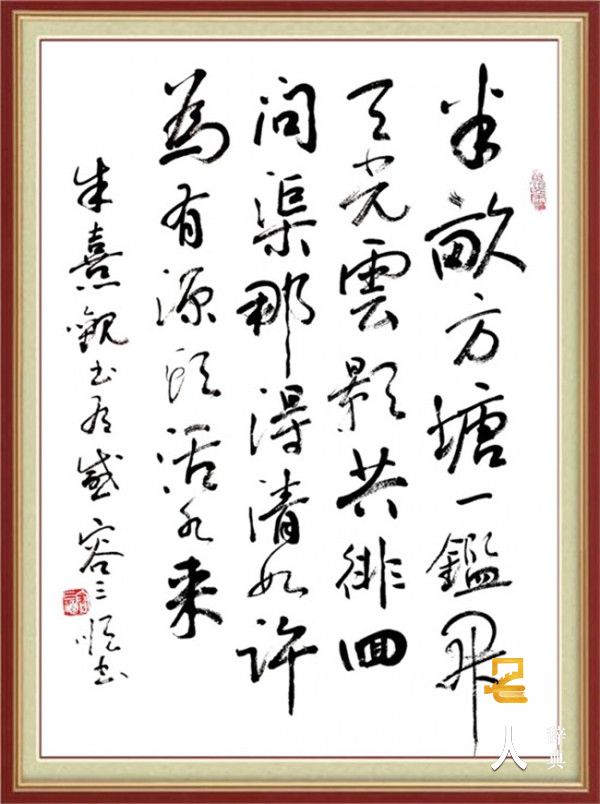 半畝方塘一鑑開
天光雲影共徘囬
問渠那得清如許
為有源頭活水来
朱熹觀書有感 容三 書
名人辞典